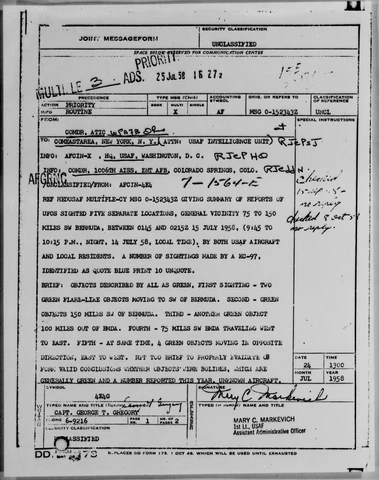 JOINT MESSAGEFORM
SECURITY CLASSIFICATION
UNCLASSIFIED
SPACE BELOW RESERVED FOR COMMUNICATION CENTER
PRIORITY
MULTIPLE 3 ADS. 25 JUL 58 16 27z
PRECEDENCE
TYPE MSG (Check)
ACCOUNTING SYMBOL
ORIG. OR REFERS TO
CLASSIFICATION OF REFERENCE
ACTION PRIORITY
BOOK MULTI SINGLE
INFO ROUTINE
X AF MSG 0-152343Z UNCL
FROM:
SPECIAL INSTRUCTIONS
COMDR, ATIC WPAFB
TO: COMEASTAREA, NEW YORK, N. Y. (ATTN: USAF INTELLIGENCE UNIT) RJEPSJ
INFO: AFCIN-X, HQ, USAF, WASHINGTON, D. C. RJEPHQ
INFO: COMDR, 1006TH AISS, ENT AFB, COLORADO SPRINGS, COLO.
UNCLASSIFIED/FROM: AFCIN-4E4 7-1564-E
REF MEDUSAF MULTIPLE-CY MSG 0-152343Z GIVING SUMMARY OF REPORTS OF
UFOS SIGHTED FIVE SEPARATE LOCATIONS, GENERAL VICINITY 75 TO 150
MILES SW BERMUDA, BETWEEN 0145 AND 0215Z 15 JULY 1958, (9:45 TO
10:15 P.M., NIGHT, 14 JULY 58, LOCAL TIME), BY BOTH USAF AIRCRAFT
AND LOCAL RESIDENTS. A NUMBER OF SIGHTINGS MADE BY A KC-97.
IDENTIFIED AS QUOTE BLUE PRINT 10 UNQUOTE.
BRIEF: OBJECTS DESCRIBED BY ALL AS GREEN, FIRST SIGHTING - TWO
GREEN FLARE-LIKE OBJECTS MOVING TO SW OF BERMUDA. SECOND - GREEN
OBJECTS 150 MILES SW OF BERMUDA. THIRD - ANOTHER GREEN OBJECT
100 MILES OUT OF BMDA. FOURTH - 75 MILES SW BMDA TRAVELING WEST
TO EAST. FIFTH - AT SAME TIME, 4 GREEN OBJECTS MOVING IN OPPOSITE
DIRECTION, EAST TO WEST. RPT TOO BRIEF TO PROPERLY EVALUATE OR
FORM VALID CONCLUSIONS WHETHER OBJECTS WERE BOLIDES, WHICH ARE
GENERALLY GREEN AND A NUMBER REPORTED THIS YEAR, UNKNOWN AIRCRAFT.
DATE 24 TIME 1300
MONTH JUL YEAR 1958
SYMBOL
4E4G
SIGNATURE
Mary C. Markevich
TYPED NAME AND TITLE
CAPT. GEORGE T. GREGORY
PHONE 6-9216
PAGE NR. 1
NR. OF PAGES 2
MARY C. MARKEVICH
1st Lt., USAF
Assistant Administrative Officer
SECURITY CLASSIFICATION
UNCLASSIFIED
DD
REPLACES DD FORM 173, 1 OCT 49, WHICH WILL BE USED UNTIL EXHAUSTED